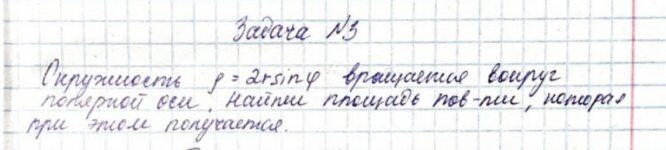 Задача №3
Окружность ρ = 2rsinφ вращается вокруг
полярной оси. Найти площадь пов-ти, которая
при этом получается.